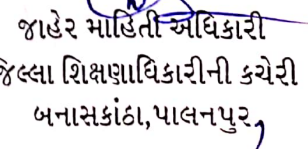 જાહેર માહિતી અધિકારી
જિલ્લા શિક્ષણાધિકારીની કચેરી
બનાસકાંઠા,પાલનપુર,